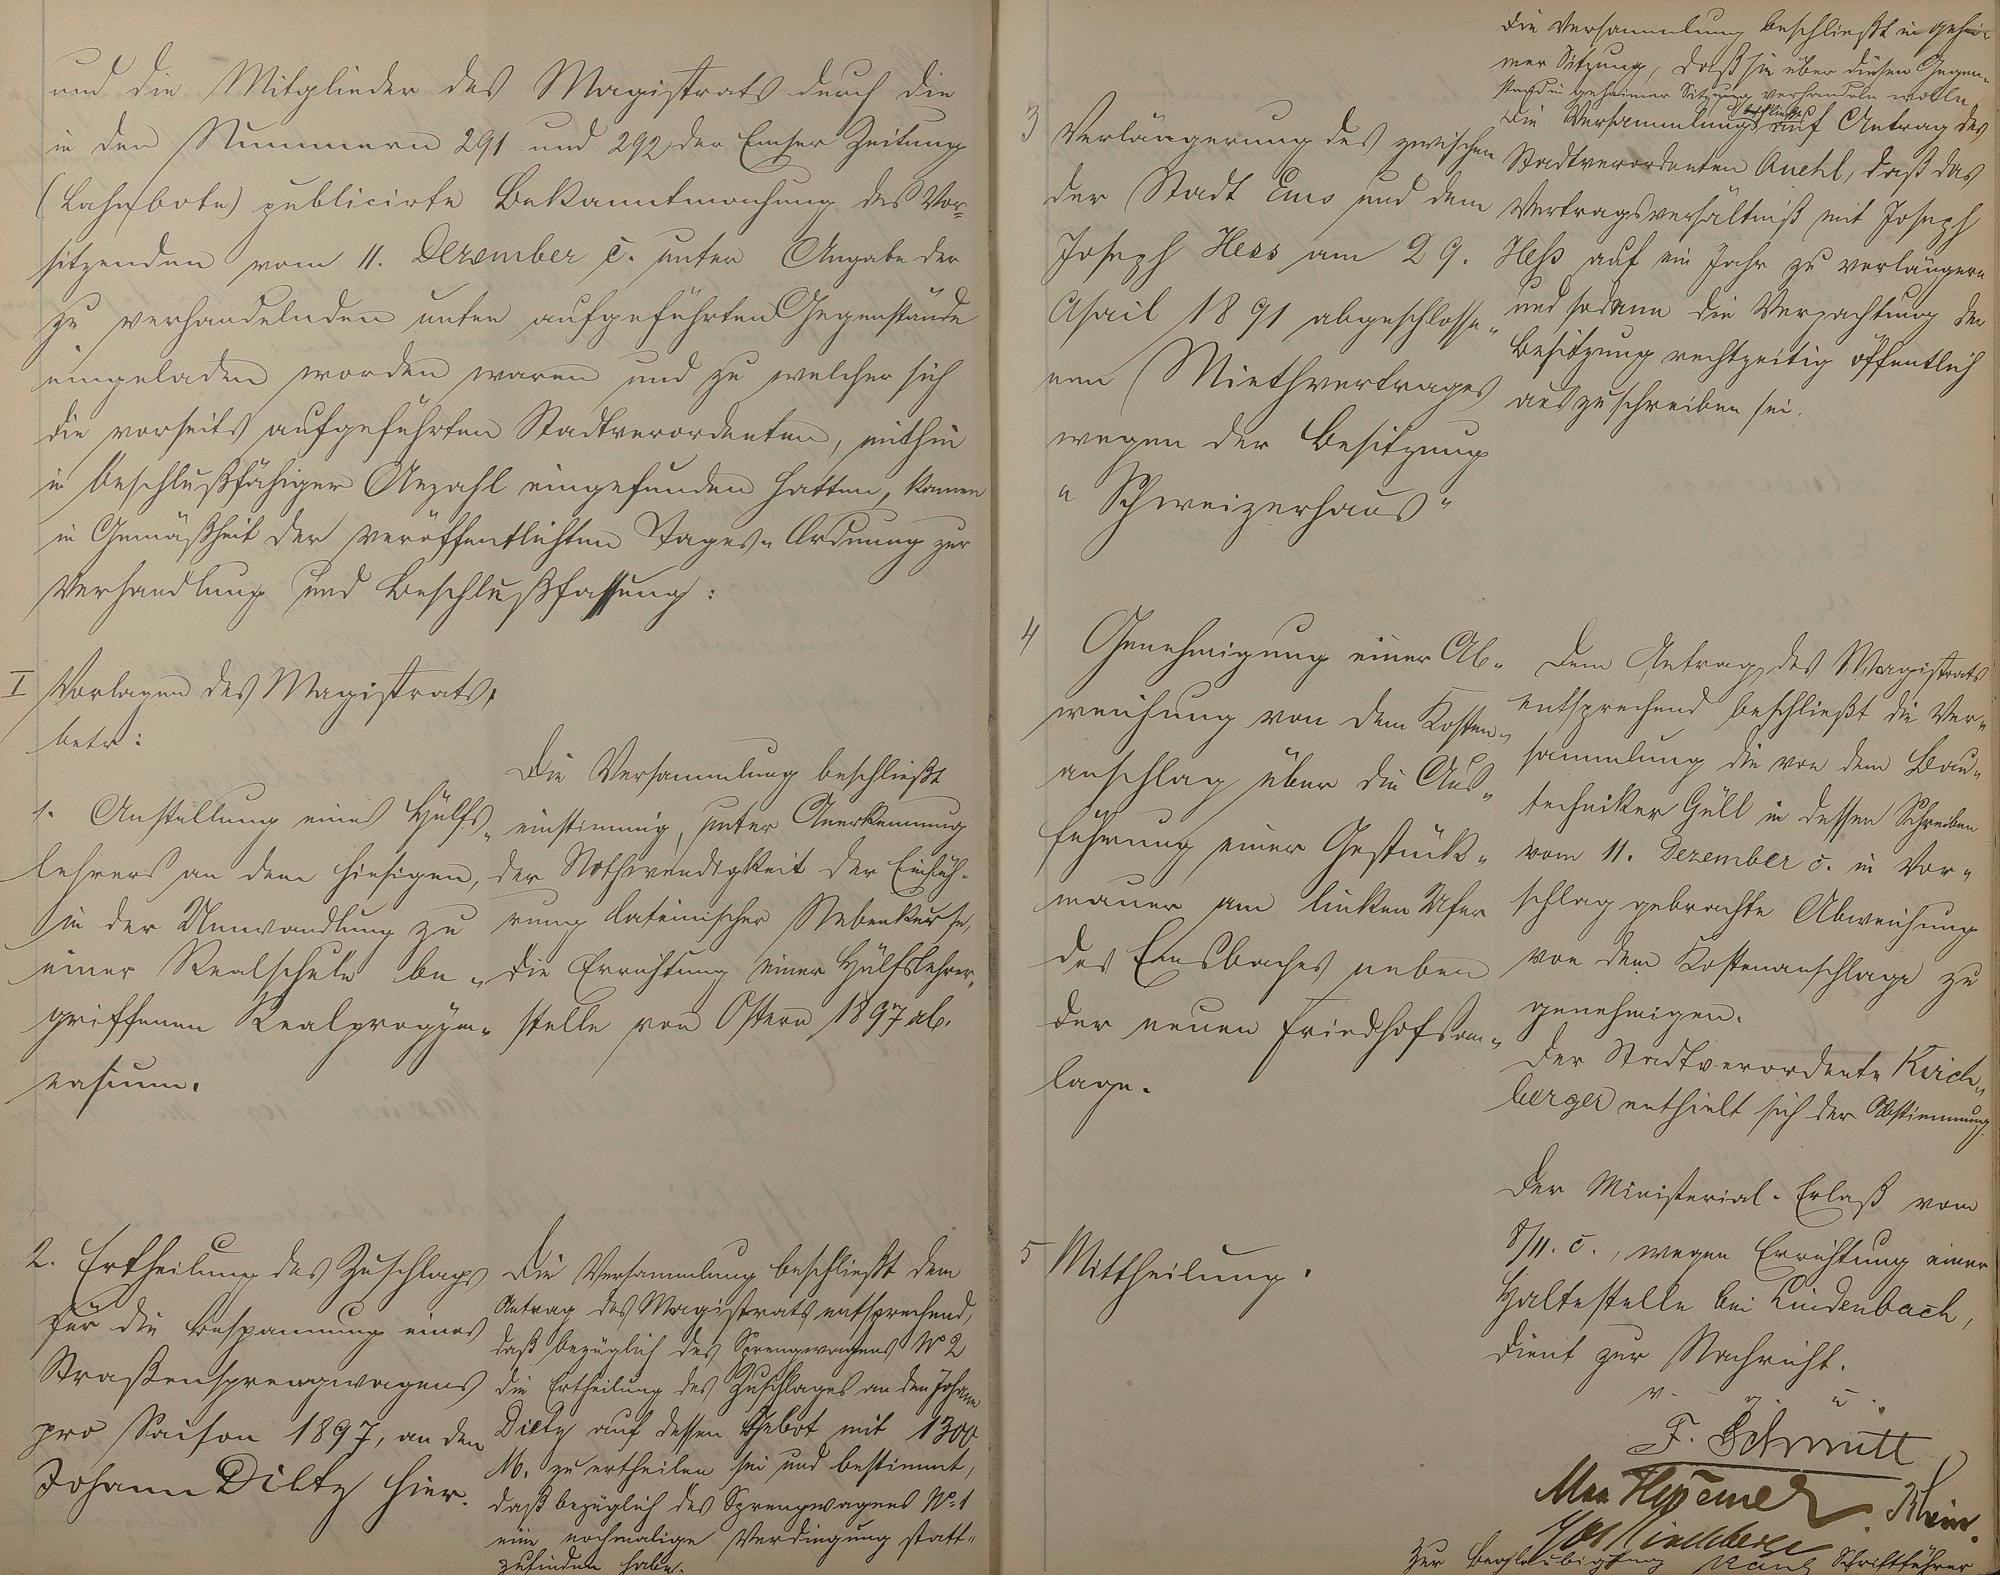 und die Mitglieder des Magistrats durch die
in den Nummern 291 und 292 der Emser Zeitung
(Lahnbote) publicirte Bekanntmachung des Vor-
sitzenden vom 11. Dezember c. unter Angabe der
zu verhandelnden unten aufgeführten Gegenstände
eingeladen worden waren und zu welcher sich
die vorseits aufgeführten Stadtverordneten, mithin
in beschlußfähiger Anzahl eingefunden hatten, kamen
in Gemäßheit der veröffentlichten Tages-Ordnung zur
Verhandlung und Beschlußfassung:
I Vorlagen des Magistrats,
betr:
1. Anstellung eines Hülfs-
lehrers an dem hiesigen,
in der Umwandlung zu
einer Realschule be-
griffenen Realprogym-
nasium.
Die Versammlung beschließt
einstimmig, unter Anerkennung
der Nothwendigkeit der Einfüh-
rung lateinischer Nebenkurse,
die Errichtung einer Hülfslehrer-
stelle von Ostern 1897 ab.
2. Ertheilung des Zuschlags
für die Bespannung eines
Straßensprengwagens
pro Saison 1897, an den
Johann Diltz hier.
Die Versammlung beschließt dem
Antrag des Magistrats entsprechend,
daß bezüglich des Sprengwagens No 2
die Ertheilung des Zuschlages an den Johann
Diltz auf dessen Gebot mit 1300
M. zu ertheilen sei und bestimmt,
daß bezüglich des Sprengwagens No 1
eine nochmalige Verdingung statt-
zufinden habe.
3 Verlängerung des zwischen
der Stadt Ems und dem
Joseph Hess am 29.
April 1891 abgeschlosse-
nen Miethvertrages
wegen der Besitzung
"Schweizerhaus"
Die Versammlung beschließt in gehei-
mer Sitzung, daß sie über diesen Gegen-
stand in geheimer Sitzung verhandeln wolle.
beschließt
Die Versammlung auf Antrag des
Stadtverordneten , daß das
Vertragsverhältniß mit Joseph
Heß auf ein Jahr zu verlängern
und sodann die Verpachtung der
Besitzung rechtzeitig öffentlich
auszuschreiben sei.
4 Genehmigung einer Ab-
weichung von dem Kosten-
anschlag über die Aus-
führung einer Gestück-
mauer am linken Ufer
des Emsbaches neben
der neuen Friedhofsan-
lage.
Dem Antrag des Magistrats
entsprechend beschließt die Ver-
sammlung die von dem Bau-
techniker Güll in dessen Schreiben
vom 11. Dezember c. in Vor-
schlag gebrachte Abweichung
von dem Kostenanschlage zu
genehmigen.
Der Stadtverordnete Kirch-
berger enthielt sich der Abstimmung.
5 Mittheilung.
Der Ministerial-Erlaß vom
8/11. c., wegen Errichtung einer
Haltestelle bei Lindenbach,
dient zur Nachricht.
v. g. u.
F. Schmitt
Rhein.
Kirchberger
Zur Beglaubigung Schriftführer